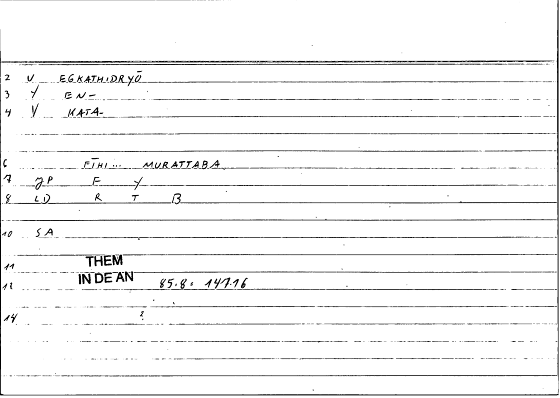 2 V EGKATHIDRYŌ
3 Y EN-
4 V KATA-
6 FĪHI... MURATTABA
7 JP F Y
8 LD R T B
10 SA
11 THEM
IN DE AN
12 85.8: 147.16
14 ?